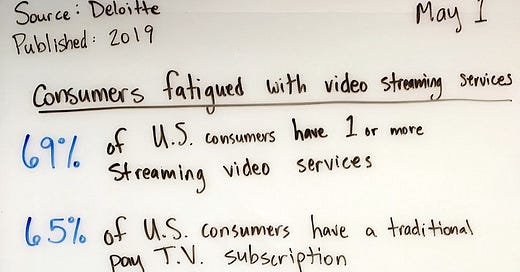 Source: Deloitte
May 1
Published: 2019
Consumers fatigued with video streaming services
69% of U.S. consumers have 1 or more
streaming video services
65% of U.S. consumers have a traditional
pay T.V. subscription